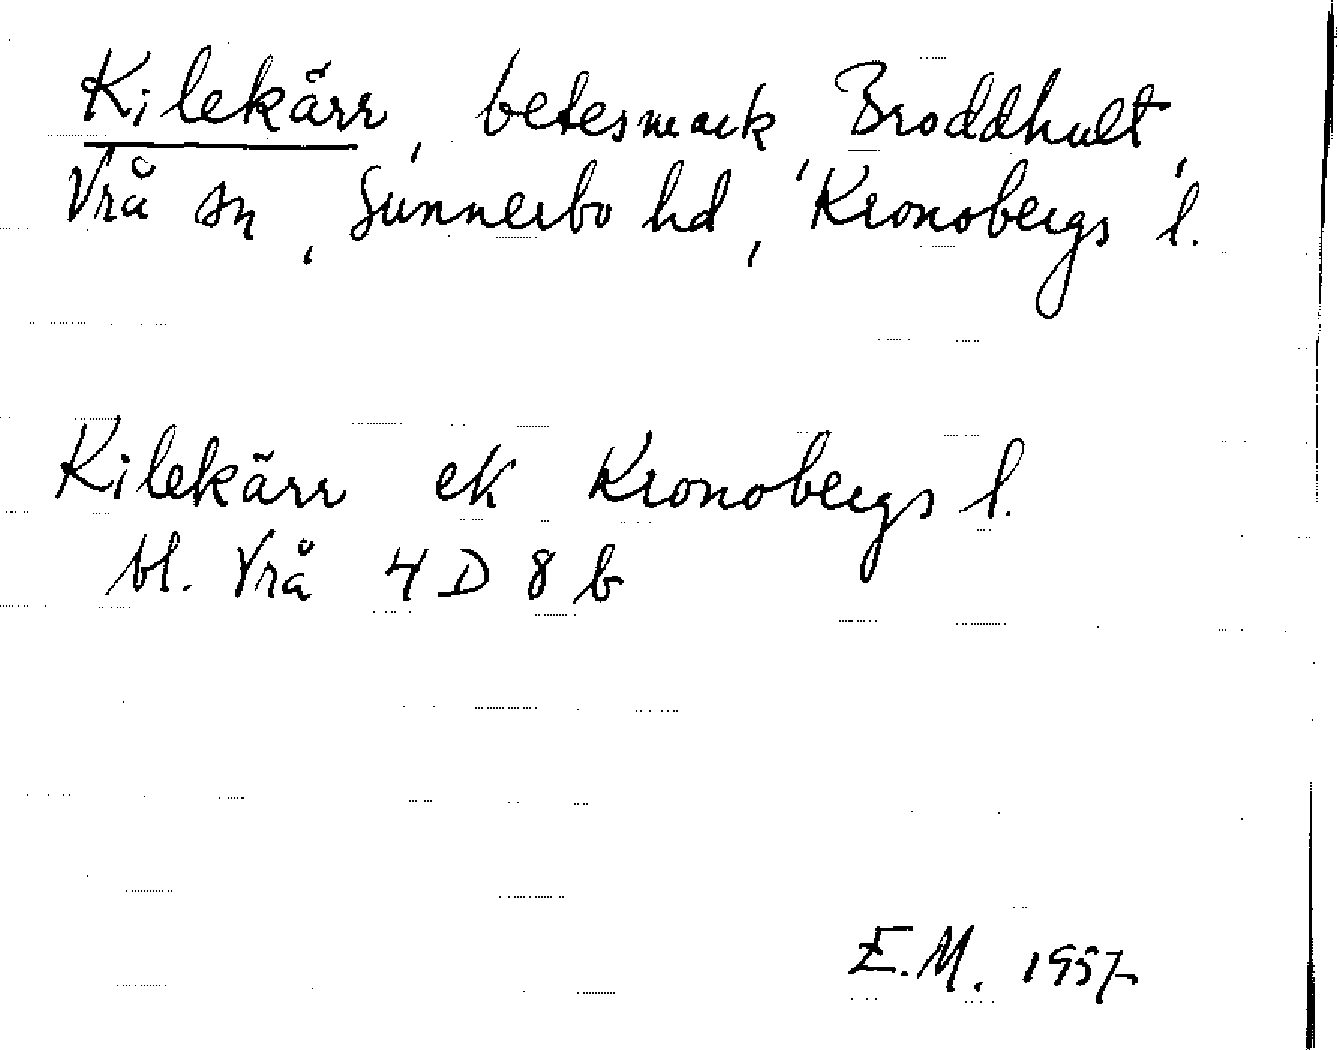 Kilekärr, betesmark, Broddhult,
Vrå sn, Sunnerbo hd, Kronobergs l.
Kilekärr ek Kronobergs l.
bl. Vrå 4 D 8 b
E.M. 1957